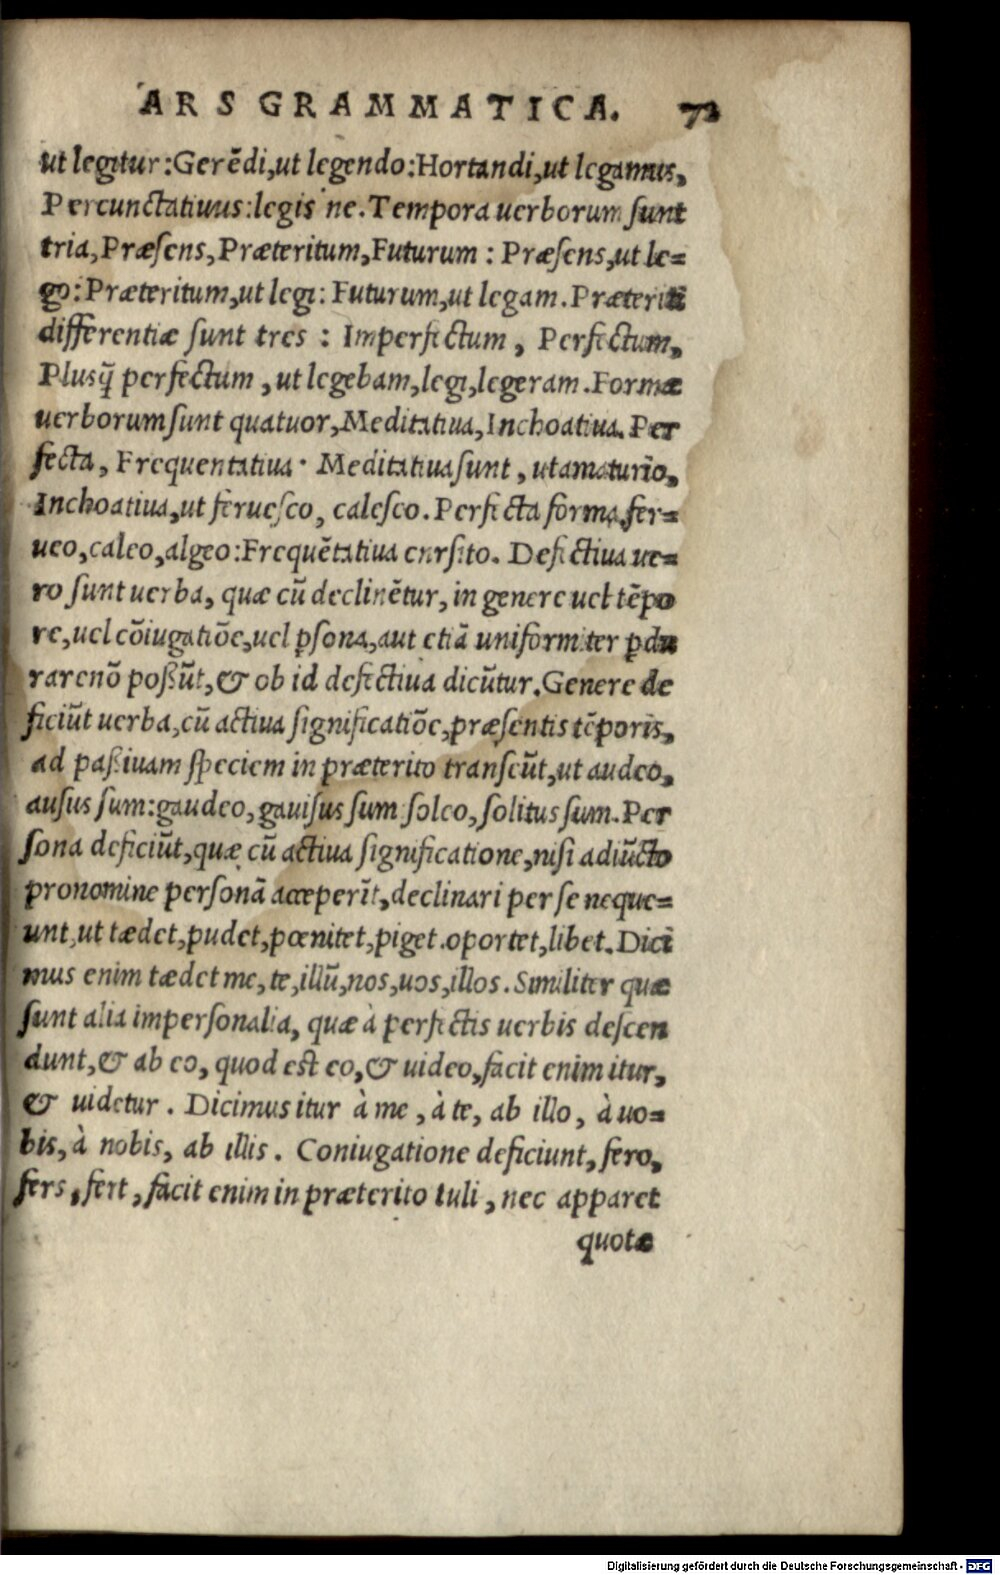 ARS GRAMMATICA. 72
ut legitur: Gerẽdi, ut legendo: Hortandi, ut legamus,
Percunctatiuus: legis ne. Tempora uerborum sunt
tria, Præsens, Præteritum, Futurum: Præsens, ut le=
go: Præteritum, ut legi: Futurum, ut legam. Præteriti
differentiæ sunt tres: Imperfectum, Perfectum,
Plusq̃ perfectum, ut legebam, legi, legeram. Formæ
uerborum sunt quatuor, Meditatiua, Inchoatiua. Per
fecta, Frequentatiua. Meditatiua sunt, ut amaturio,
Inchoatiua, ut feruesco, calesco. Perfecta forma, fer=
ueo, caleo, algeo: Frequẽtatiua cursito. Defectiua ue=
ro sunt uerba, quæ cũ declinẽtur, in genere uel tẽpo
re, uel cõiugatiõe, uel ꝑsona, aut etiã uniformiter ꝑdu
rare nõ possũt, & ob id defectiua dicũtur. Genere de
ficiũt uerba, cũ actiua significatiõe, præsentis tẽporis,
ad passiuam speciem in præterito transeũt, ut audeo,
ausus sum: gaudeo, gauisus sum soleo, solitus sum. Per
sona deficiũt, quæ cũ actiua significatione, nisi adiũcto
pronomine personã acceperĩt, declinari per se neque=
unt, ut tædet, pudet, pœnitet, piget. oportet, libet. Dici
mus enim tædet me, te, illũ, nos, uos, illos. Similiter quæ
sunt alia impersonalia, quæ à perfectis uerbis descen
dunt, & ab eo, quod est eo, & uideo, facit enim itur,
& uidetur. Dicimus itur à me, à te, ab illo, à uo=
bis, à nobis, ab illis. Coniugatione deficiunt, fero,
fers, fert, facit enim in præterito tuli, nec apparet
quotæ
Digitalisierung gefördert durch die Deutsche Forschungsgemeinschaft - DFG